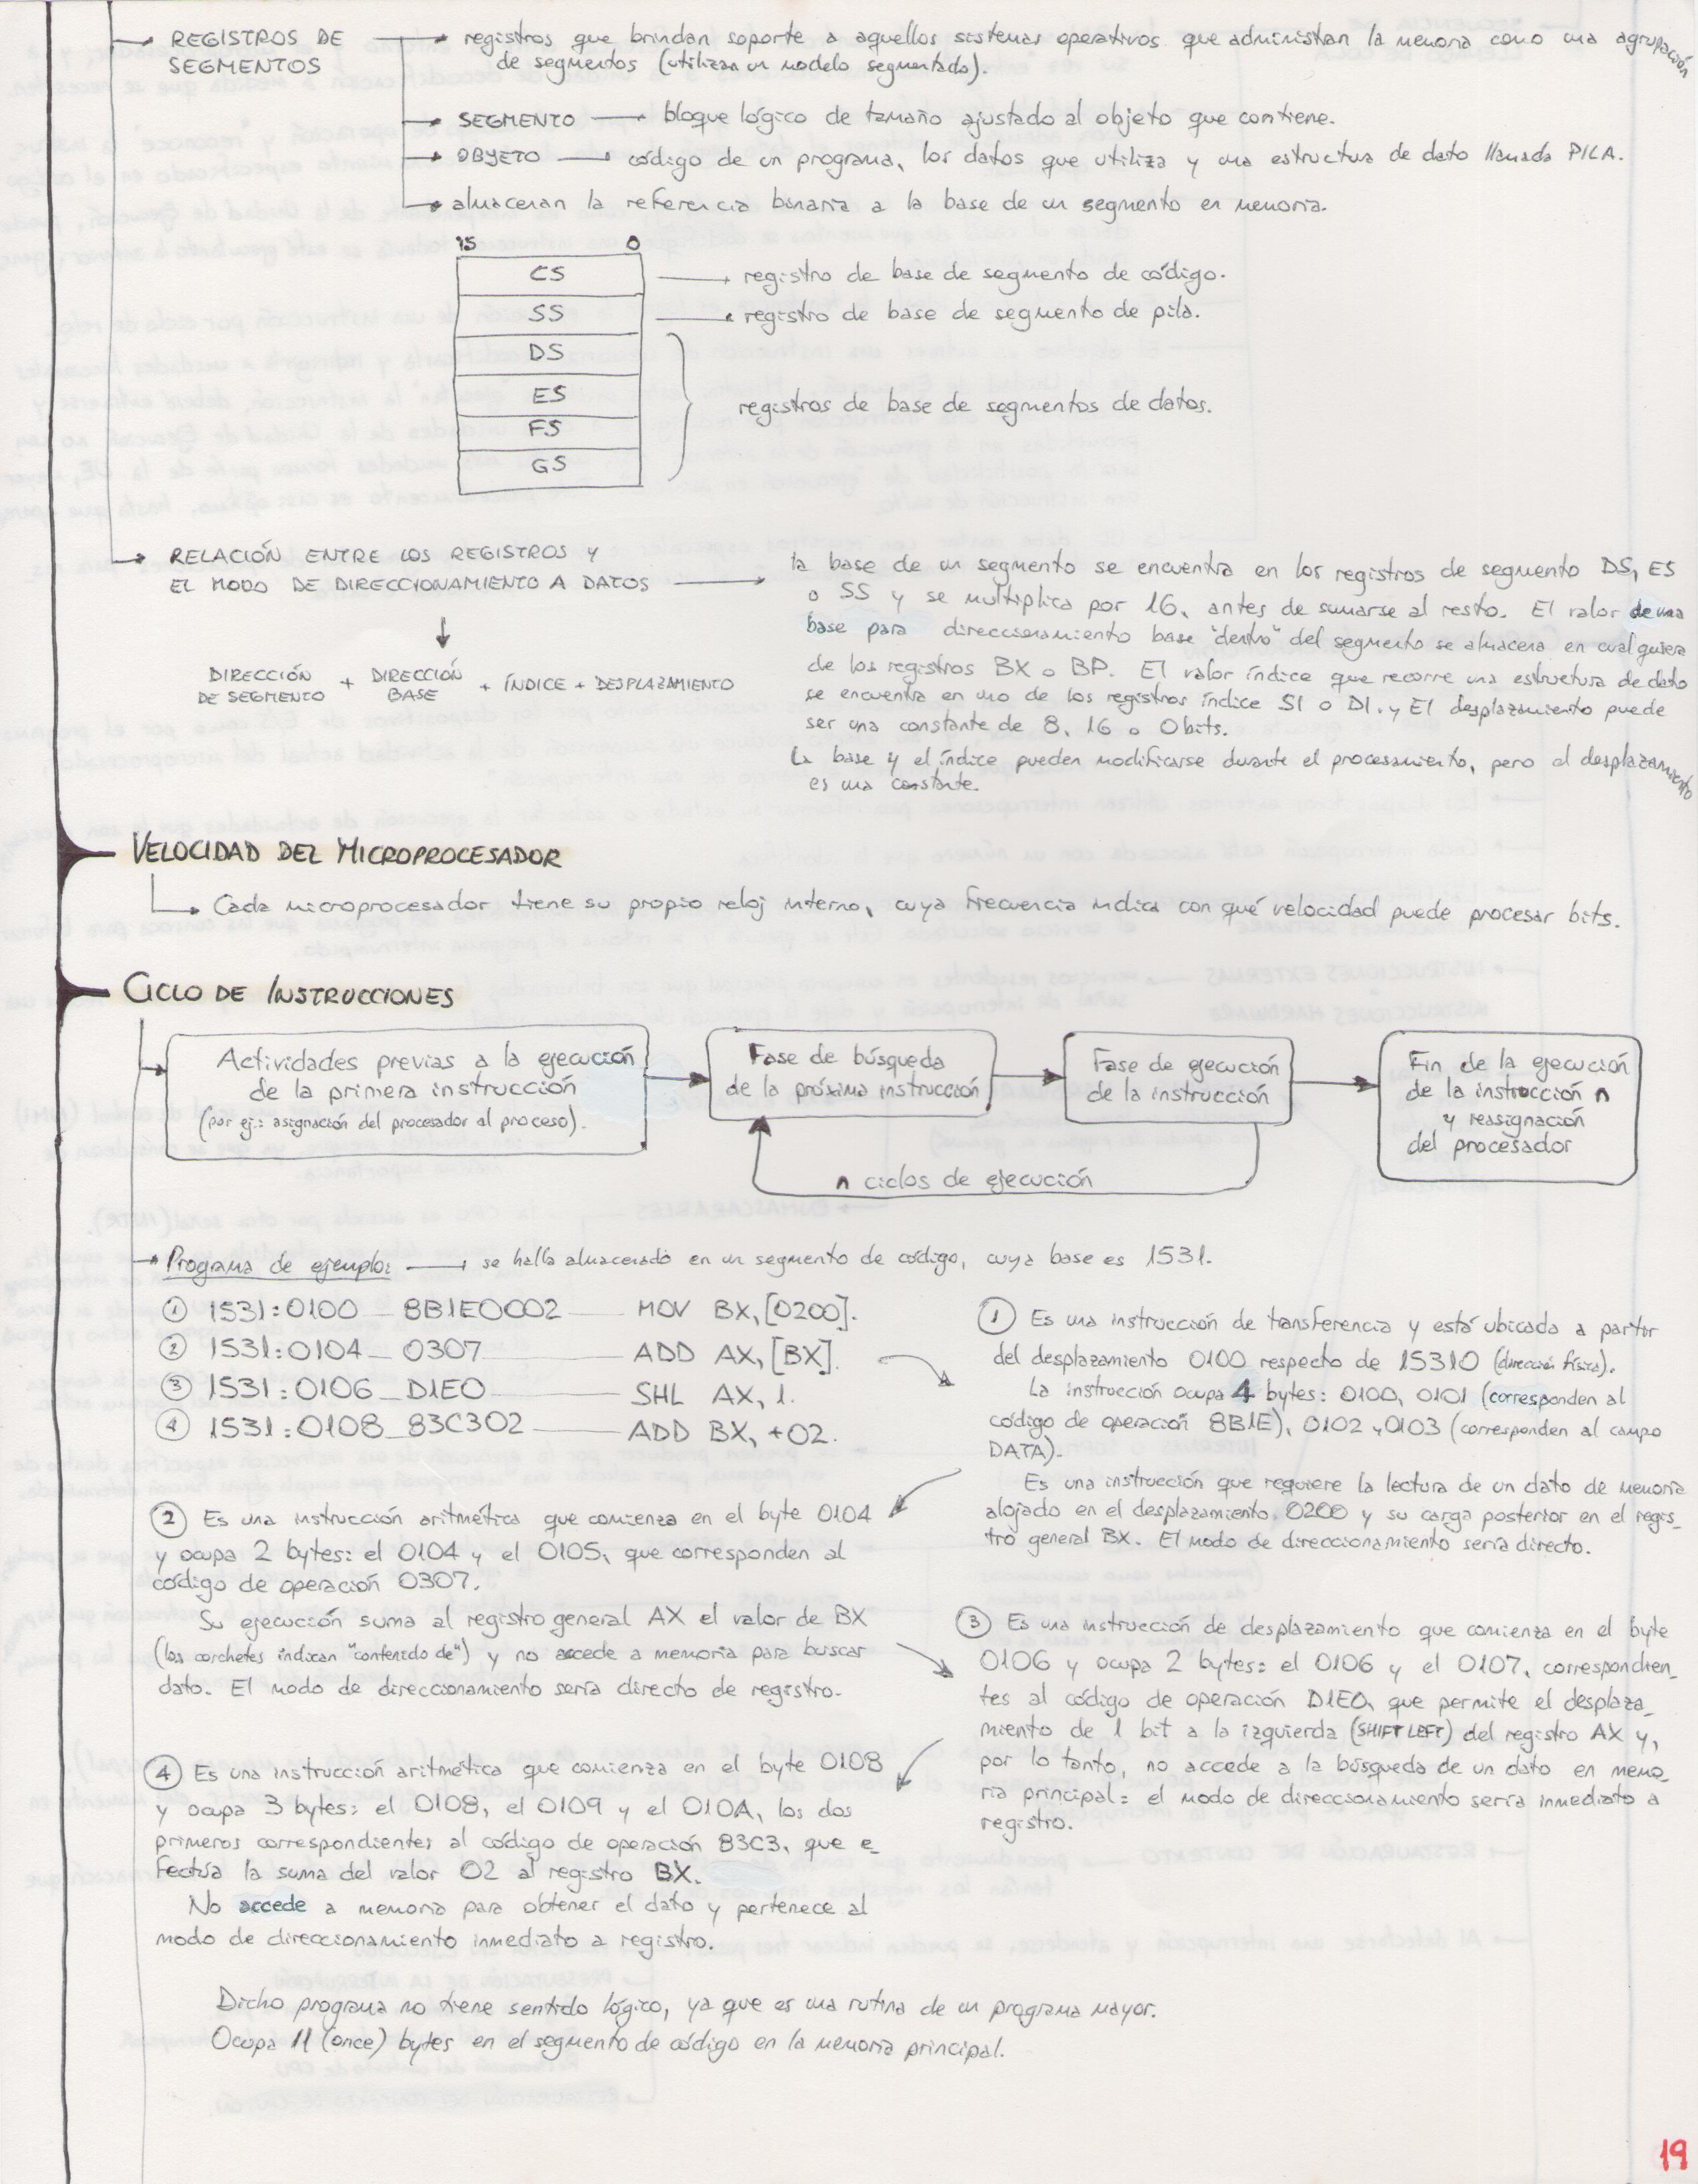 REGISTROS DE
SEGMENTOS
registros que brindan soporte a aquellos sistemas operativos que administran la memoria como una agrupación
de segmentos (utilizan un modelo segmentado).
SEGMENTO bloque lógico de tamaño ajustado al objeto que contiene.
OBJETO código de un programa, los datos que utiliza y una estructura de dato llamada PILA.
almacenan la referencia binaria a la base de un segmento en memoria.
15 0
CS registro de base de segmento de código.
SS registro de base de segmento de pila.
DS
ES
FS
GS
registros de base de segmentos de datos.
RELACIÓN ENTRE LOS REGISTROS Y
EL MODO DE DIRECCIONAMIENTO A DATOS
DIRECCIÓN DE SEGMENTO + DIRECCIÓN BASE + ÍNDICE + DESPLAZAMIENTO
la base de un segmento se encuentra en los registros de segmento DS, ES
o SS y se multiplica por 16, antes de sumarse al resto. El valor de una
base para direccionamiento base "dentro" del segmento se almacena en cualquiera
de los registros BX o BP. El valor índice que recorre una estructura de dato
se encuentra en uno de los registros índice SI o DI. y El desplazamiento puede
ser una constante de 8, 16 o 0 bits.
La base y el índice pueden modificarse durante el procesamiento, pero el desplazamiento
es una constante.
VELOCIDAD DEL MICROPROCESADOR
Cada microprocesador tiene su propio reloj interno, cuya frecuencia indica con qué velocidad puede procesar bits.
CICLO DE INSTRUCCIONES
Actividades previas a la ejecución
de la primera instrucción
(por ej.: asignación del procesador al proceso).
Fase de búsqueda
de la próxima instrucción
Fase de ejecución
de la instrucción
Fin de la ejecución
de la instrucción n
y reasignación
del procesador
n ciclos de ejecución
Programa de ejemplo: se halla almacenado en un segmento de código, cuya base es 1531.
1 1531:0100 8B1E0002 MOV BX,[0200].
2 1531:0104 0307 ADD AX,[BX].
3 1531:0106 D1E0 SHL AX, 1.
4 1531:0108 83C302 ADD BX,+02.
1 Es una instrucción de transferencia y está ubicada a partir
del desplazamiento 0100 respecto de 15310 (dirección física).
La instrucción ocupa 4 bytes: 0100, 0101 (corresponden al
código de operación 8B1E), 0102 y 0103 (corresponden al campo
DATA).
Es una instrucción que requiere la lectura de un dato de memoria
alojado en el desplazamiento 0200 y su carga posterior en el regis_
tro general BX. El modo de direccionamiento sería directo.
2 Es una instrucción aritmética que comienza en el byte 0104
y ocupa 2 bytes: el 0104 y el 0105, que corresponden al
código de operación 0307.
Su ejecución suma al registro general AX el valor de BX
(los corchetes indican "contenido de") y no accede a memoria para buscar
dato. El modo de direccionamiento sería directo de registro.
3 Es una instrucción de desplazamiento que comienza en el byte
0106 y ocupa 2 bytes: el 0106 y el 0107, correspondien_
tes al código de operación D1E0, que permite el desplaza_
miento de 1 bit a la izquierda (SHIFT LEFT) del registro AX y,
por lo tanto, no accede a la búsqueda de un dato en memo_
ria principal: el modo de direccionamiento sería inmediato a
registro.
4 Es una instrucción aritmética que comienza en el byte 0108
y ocupa 3 bytes: el 0108, el 0109 y el 010A, los dos
primeros correspondientes al código de operación 83C3, que e_
fectúa la suma del valor 02 al registro BX.
No accede a memoria para obtener el dato y pertenece al
modo de direccionamiento inmediato a registro.
Dicho programa no tiene sentido lógico, ya que es una rutina de un programa mayor.
Ocupa 11 (once) bytes en el segmento de código en la memoria principal.
19